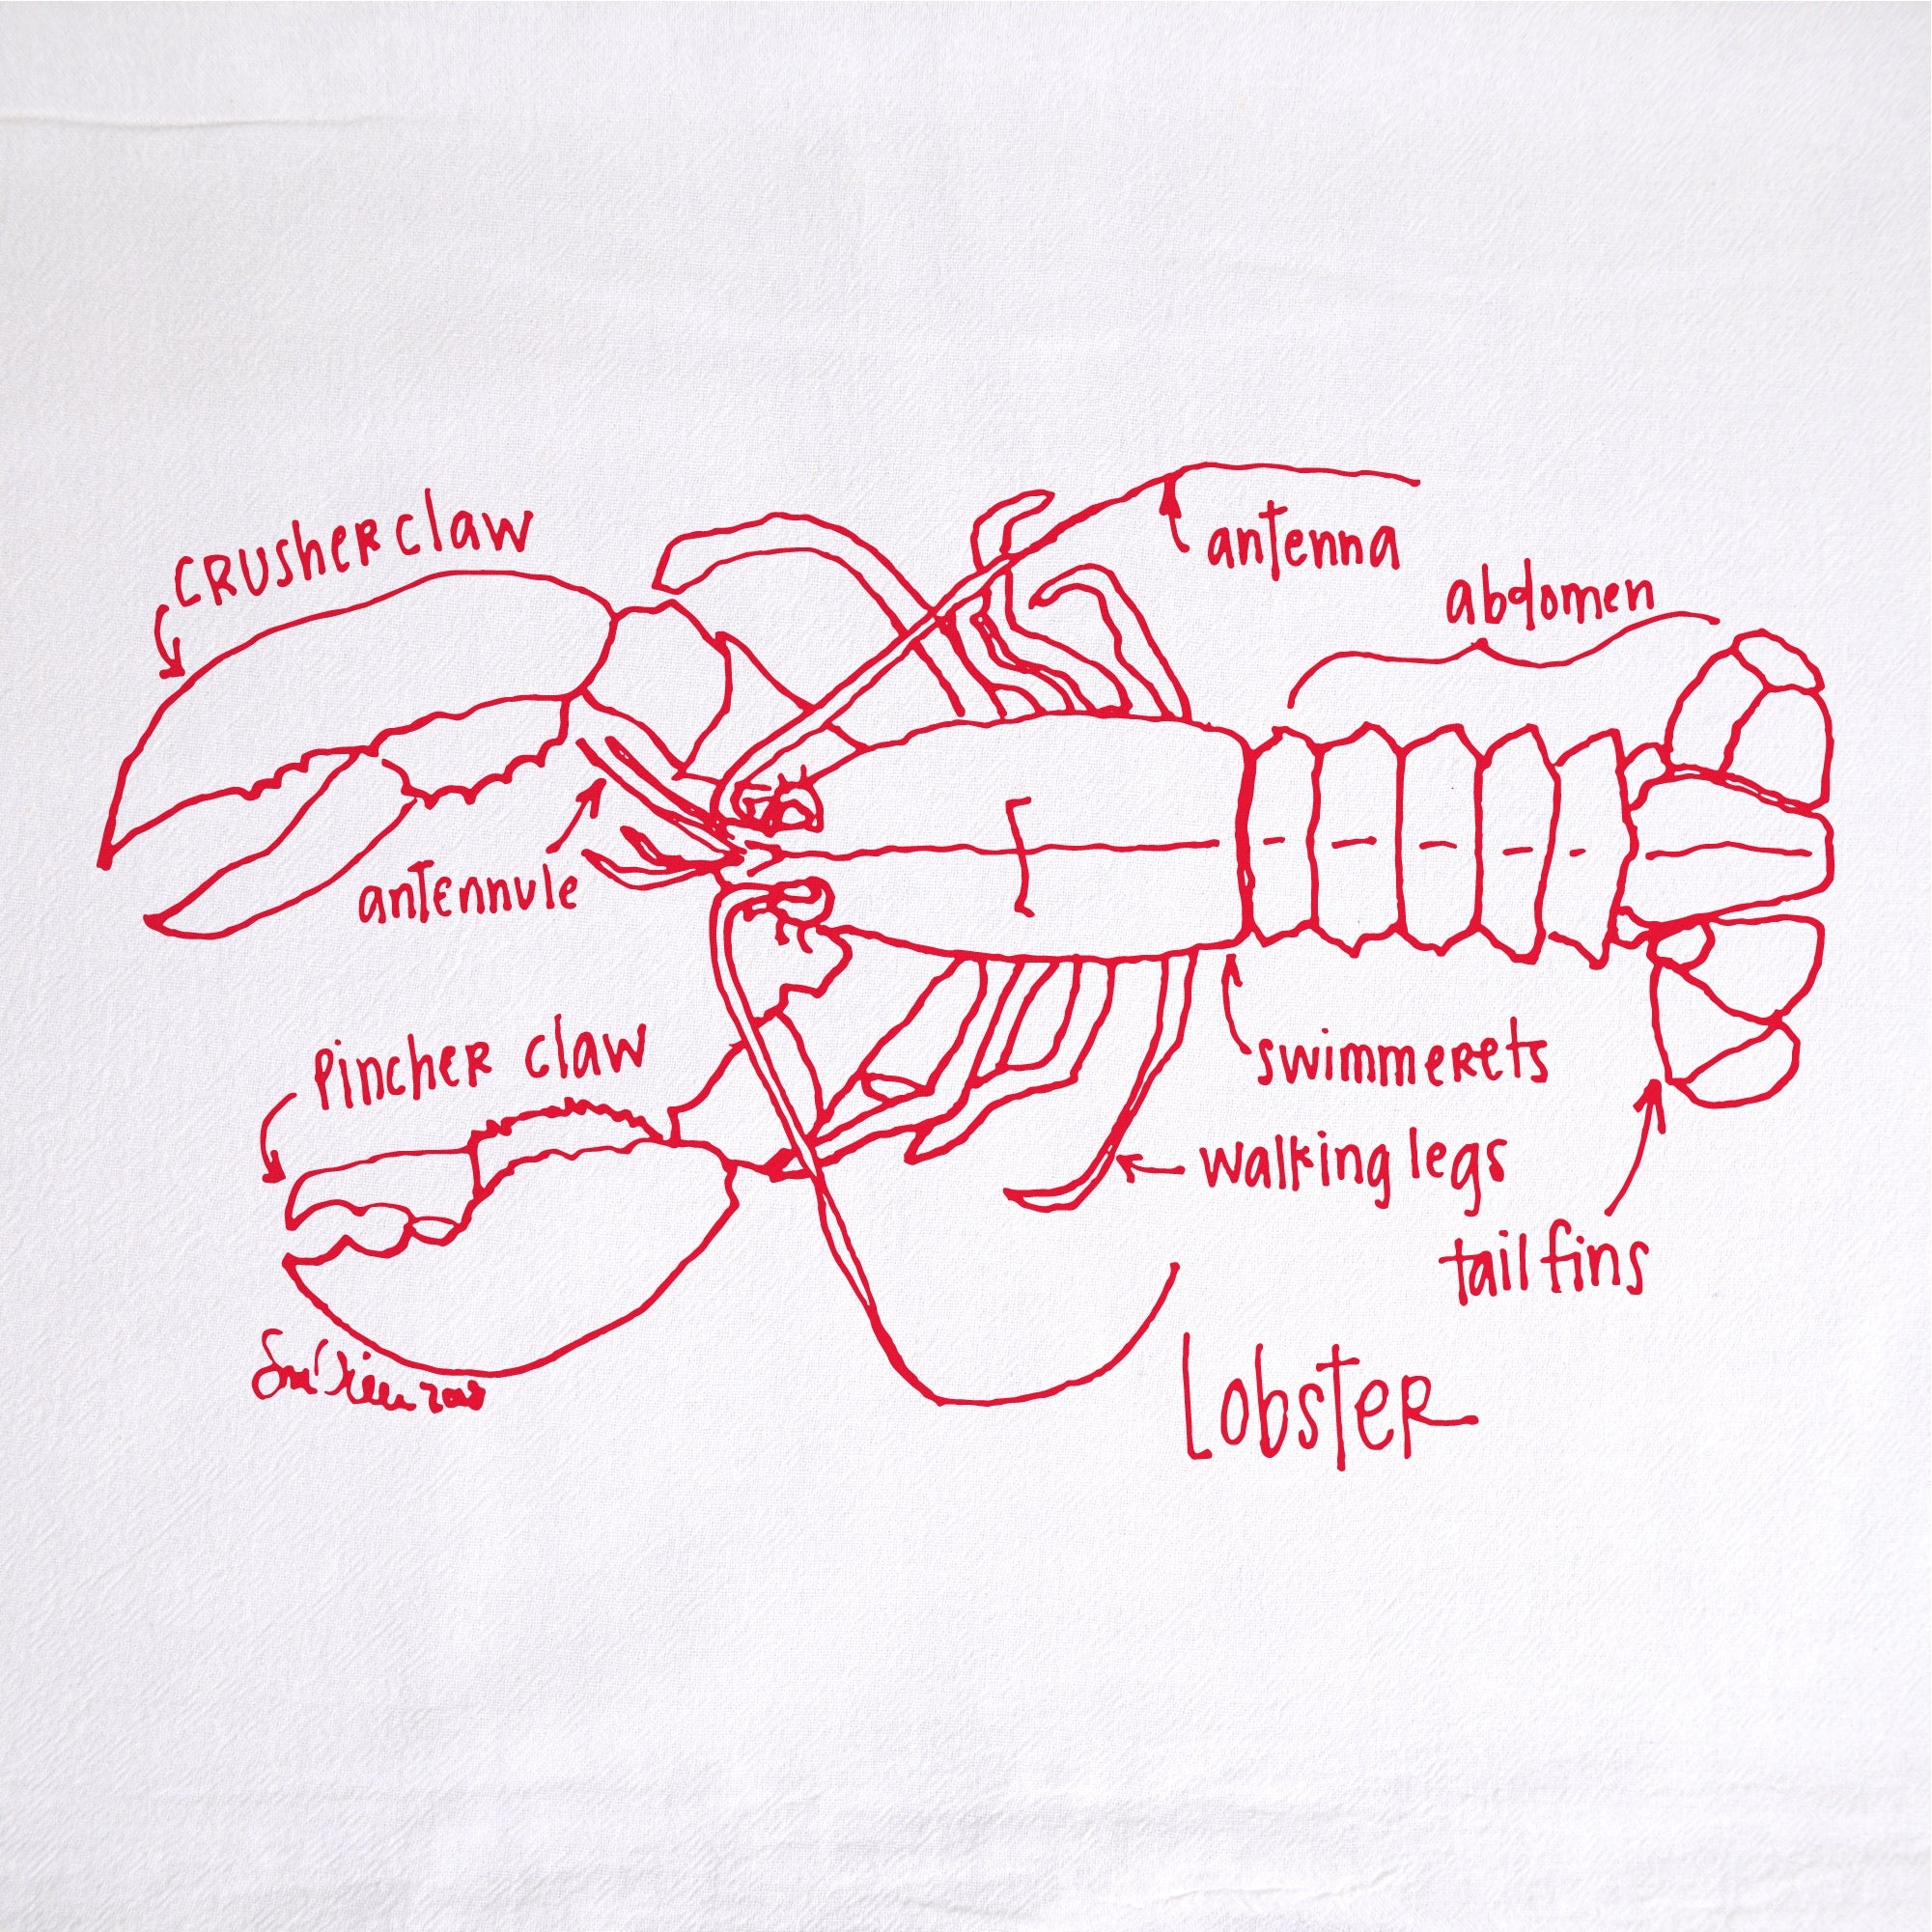 CRUSHER claw
antenna
abdomen
antennule
Pincher claw
swimmerets
walking legs
tail fins
Lobster